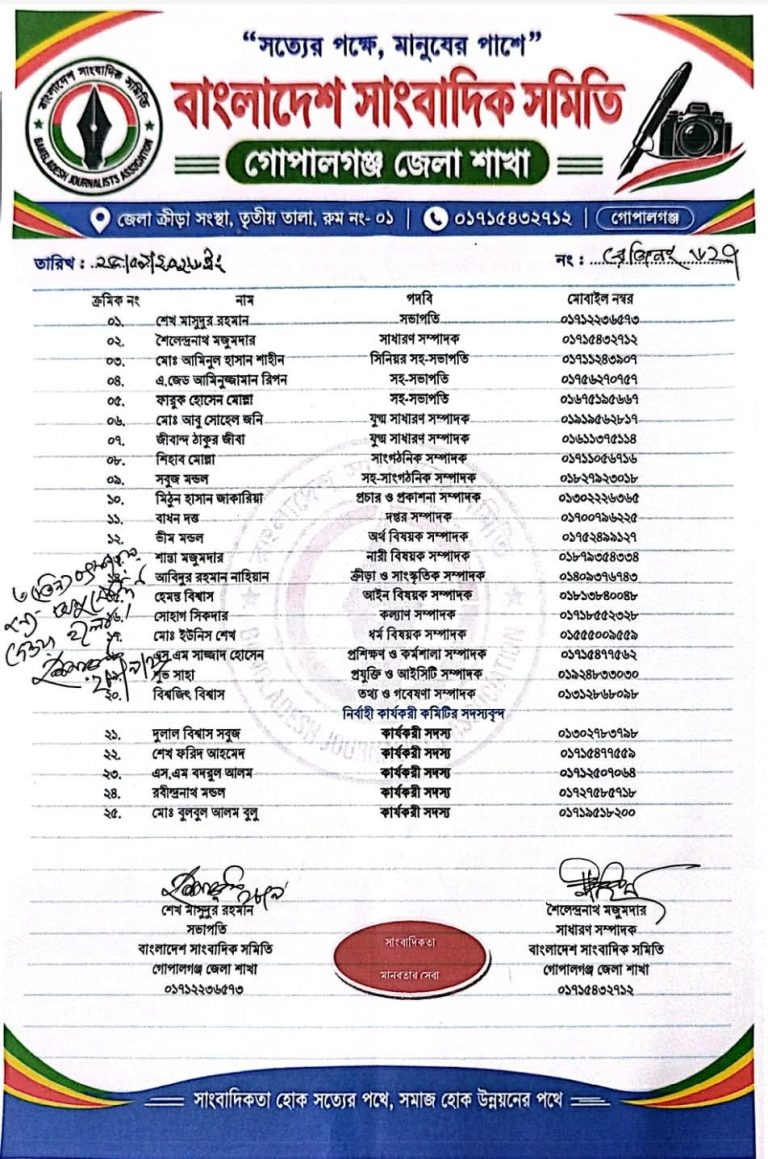 “সত্যের পক্ষে, মানুষের পাশে”
বাংলাদেশ সাংবাদিক সমিতি
গোপালগঞ্জ জেলা শাখা
বাংলাদেশ সাংবাদিক সমিতি
BANGLADESH JOURNALISTS ASSOCIATION
জেলা ক্রীড়া সংস্থা, তৃতীয় তালা, রুম নং- ০১ | ০১৭১৫৪৩২৭১২ | গোপালগঞ্জ
তারিখ : নং :
ক্রমিক নং নাম পদবি মোবাইল নম্বর
০১. শেখ মাসুদুর রহমান সভাপতি ০১৭১২২৩৬৫৭৩
০২. শৈলেন্দ্রনাথ মজুমদার সাধারণ সম্পাদক ০১৭১৫৪৩২৭১২
০৩. মোঃ আমিনুল হাসান শাহীন সিনিয়র সহ-সভাপতি ০১৭১১২৪৩৯০৭
০৪. এ.জেড আমিনুজ্জামান রিপন সহ-সভাপতি ০১৭৫৬২৭০৭৫৭
০৫. ফারুক হোসেন মোল্লা সহ-সভাপতি ০১৬৭৫১৯৫৬৬৭
০৬. মোঃ আবু সোহেল জনি যুগ্ম সাধারণ সম্পাদক ০১৯১৯৫৬২৮১৭
০৭. জীবান্দ ঠাকুর জীবা যুগ্ম সাধারণ সম্পাদক ০১৬১১৩৭৫১১৪
০৮. শিহাব মোল্লা সাংগঠনিক সম্পাদক ০১৭১১০৫৬৭১৬
০৯. সবুজ মন্ডল সহ-সাংগঠনিক সম্পাদক ০১৮২৭৯২৩০১৮
১০. মিঠুন হাসান জাকারিয়া প্রচার ও প্রকাশনা সম্পাদক ০১৩০২২২৬৩৬৫
১১. বাধন দত্ত দপ্তর সম্পাদক ০১৭০০৭৯৬২২৫
১২. ভীম মন্ডল অর্থ বিষয়ক সম্পাদক ০১৭৫২৪৯৯১২৭
শান্তা মজুমদার নারী বিষয়ক সম্পাদক ০১৮৭৯৩৫৪৩৩৪
১৪. আবিদুর রহমান নাহিয়ান ক্রীড়া ও সাংস্কৃতিক সম্পাদক ০১৪০৯৩৭৬৭৪৩
হেমন্ত বিশ্বাস আইন বিষয়ক সম্পাদক ০১৮১৩৮৪০০৪৮
১৬. সোহাগ সিকদার কল্যাণ সম্পাদক ০১৭১৮৫৫২৩২৮
১৭. মোঃ ইউনিস শেখ ধর্ম বিষয়ক সম্পাদক ০১৫৫৫০০৯৫৫৯
এস.এম সাজ্জাদ হোসেন প্রশিক্ষণ ও কর্মশালা সম্পাদক ০১৭১৫৪৭৭৫৬২
শুভ সাহা প্রযুক্তি ও আইসিটি সম্পাদক ০১৯২৪৮৩৩০৩০
২০. বিশ্বজিৎ বিশ্বাস তথ্য ও গবেষণা সম্পাদক ০১৩১২৮৬৮০৯৮
নির্বাহী কার্যকরী কমিটির সদস্যবৃন্দ
২১. দুলাল বিশ্বাস সবুজ কার্যকরী সদস্য ০১৩০২৭৮৩৭৯৮
২২. শেখ ফরিদ আহমেদ কার্যকরী সদস্য ০১৭১৫৪৭৭৫৫৯
২৩. এস,এম বদরুল আলম কার্যকরী সদস্য ০১৭১২৫০৭০৬৪
২৪. রবীন্দ্রনাথ মন্ডল কার্যকরী সদস্য ০১৭২৭৫৮৫৭১৮
২৫. মোঃ বুলবুল আলম বুলু কার্যকরী সদস্য ০১৭১৯৫১৮২০০
শেখ মাসুদুর রহমান শৈলেন্দ্রনাথ মজুমদার
সভাপতি সাধারণ সম্পাদক
বাংলাদেশ সাংবাদিক সমিতি বাংলাদেশ সাংবাদিক সমিতি
গোপালগঞ্জ জেলা শাখা গোপালগঞ্জ জেলা শাখা
০১৭১২২৩৬৫৭৩ ০১৭১৫৪৩২৭১২
সাংবাদিকতা
মানবতার সেবা
সাংবাদিকতা হোক সত্যের পথে, সমাজ হোক উন্নয়নের পথে